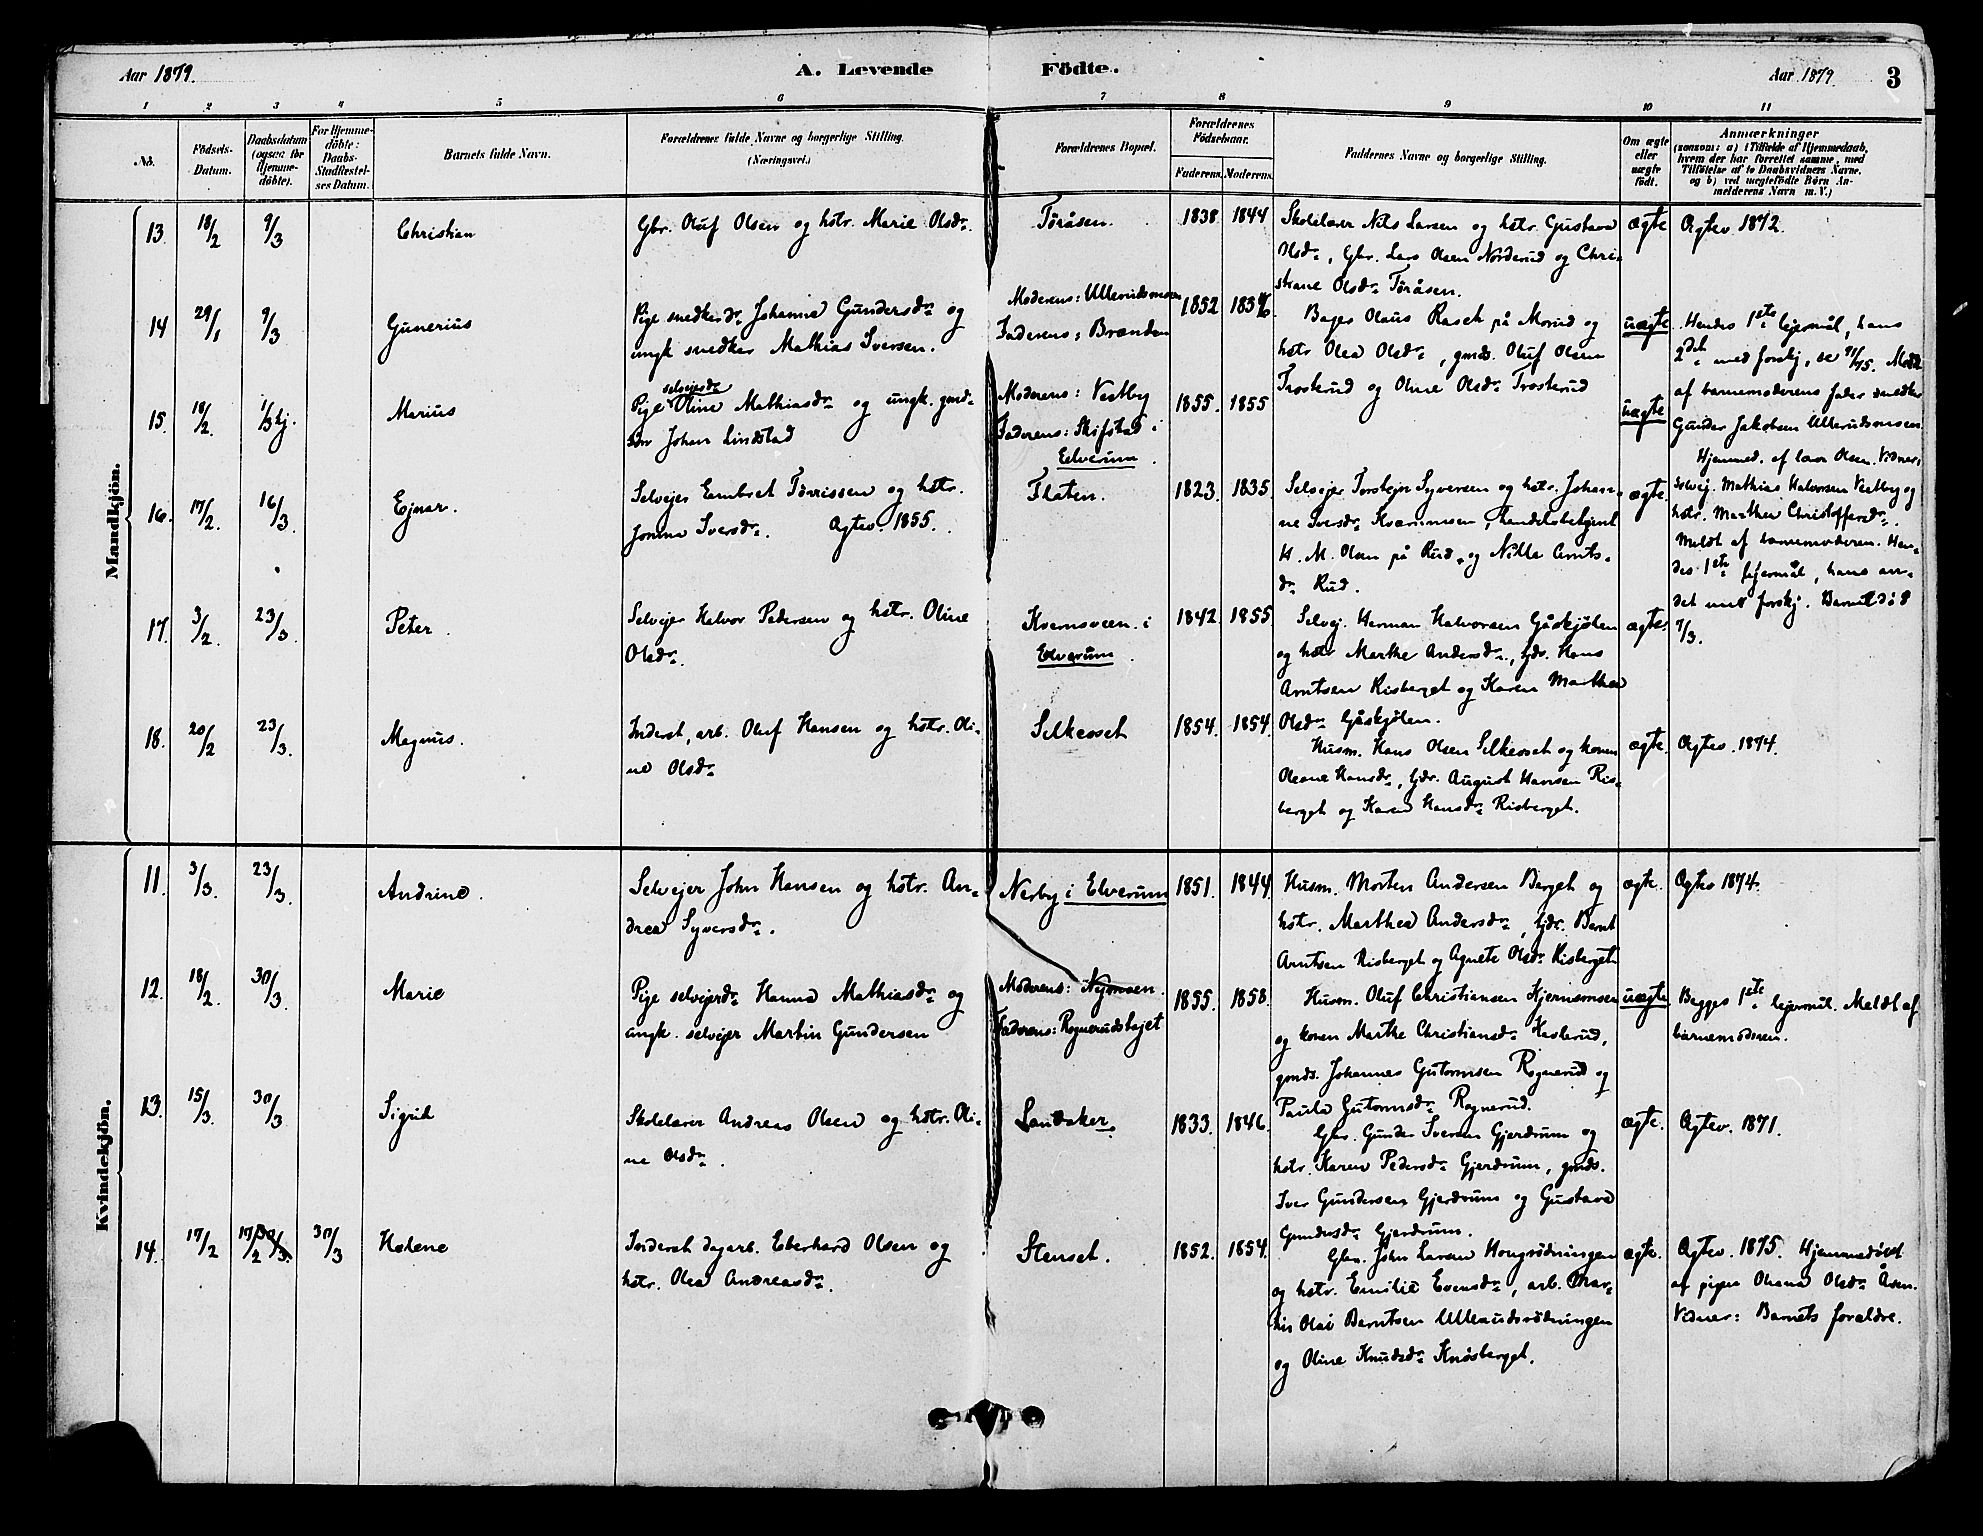 Aar 1879.
A. Levende Födte.
Aar 1879.
3
1 2 3 4 5 6 7 8 9 10 11
No.
Födsels-Datum.
Daabsdatum (ogsaa for Hjemme-döbte).
For Hjemme-döbte: Daabs-Stadfæstel-ses Datum.
Barnets fulde Navn.
Forældrenes fulde Navne og borgerlige Stilling. (Næringsvei.)
Forældrenes Bopæl.
Forældrenes Födselsaar.
Faderens. Moderens.
Faddernes Navne og borgerlige Stilling.
Om ægte eller uægte födt.
Anmærkninger
(saasom: a) i Tilfælde af Hjemmedaab, hvem der har forrettet samme, med Tilföielse af to Daabsvidners Navne, og b) ved uægtefödte Börn An-melderens Navn m.V.)
Mandkjön.
13. 18/2 9/3 Christian
Gbr. Oluf Olsen og hstr. Marie Olsdr.
Töråsen.
1838 1844
Skolelærer Nils Larsen og hstr. Gustava
Olsdr., Gbr. Lars Olsen Norderud og Chri-
stiane Olsdr. Töråsen.
ægte
Ægtev. 1872.
14 29/1 9/3 Gunerius
Pige snedkerdr. Johanna Gundersdr. og
ungk snedker Mathias Iversen.
Moderens: Ullerudsmoen
Faderens: Branden
1852
Bager Olaus Rasch på Morud og
hstr Olea Olsdr., gmds. Oluf Olsen
Trosterud og Oline Olsdr. Trosterud
uægte
Hendes 1ste lejermål, hans
2det med forskj, se 91/75. Meldt
af barnemoderens fader snedker
Gunder Jakobsen Ullerudsmoen
15. 18/2 1/3 hj. Marius
Pige selvejerdr. Oline Mathiasdr. og ungk. gmd-
sön Johan Lindstad
Moderens: Vestby
Faderens: Skifstad i
Elverum.
1855. 1855
uægte
Hjemmed. af lærer Olsen. Vidner:
Selvej. Mathias Halvorsen Vestby og
hstr. Marthea Christoffersdr.
Meldt af barnemoderen. Hen-
des 1ste lejermål, hans an-
det med forskj. Barnet död
9/3.
16. 17/2 16/3 Ejnar.
Selvejer Embret Törrissen og hstr.
Jonine Iversdr. Ægtev. 1855.
Flaten.
1823. 1835
Selvejer Torstejn Syversen og hstr. Johan-
ne Iversdr. Kværnmoen, handelsbetjent
H. M. Olsen på Rud, og Nilla Arnts-
dr. Rud.
ægte.
17. 3/2 23/3. Peter.
Selvejer Halvor Pedersen og hstr. Oline
Olsdr.
Kvernsveen i
Elverum.
1842. 1855
Selvej. Herman Halvorsen Gåskjölen
og hstr Marthe Andersdr., tjdr. Hans
Arntsen Risberget og Karen Marthea
Olsdr. Gåskjölen.
ægte.
18. 20/2 23/3. Magnus.
Inderst, arb. Oluf Hansen og hstr. Oli-
ne Olsdr.
Silkeset
1854. 1854.
Husm. Hans Olsen Silkeset og konen
Oleane Hansdr., tjdr. August Hansen Ris-
berget og Karen Hansdr. Risberget.
ægte.
Ægtev. 1874.
Kvindekjön.
11. 3/3. 23/3. Andrine.
Selvejer John Hansen og hstr. An-
drea Syversdr.
Nerby i Elverum
1851. 1844
Husm. Morten Andersen Berget og
hstr. Marthea Andersdr., tjdr. Bernt
Arntsen Risberget og Agnete Olsdr. Risberget
ægte.
Ægtev 1874.
12. 18/2. 30/3. Marie
Pige selvejerdr. Hanna Mathiasdr. og
ungk. selvejer Martin Gundersen
Moderens: Nymoen.
Faderens: Rognerudshøjet
1855. 1858.
Husm. Oluf Christiansen Kjernsmoen
og konen Marthe Christiansdr. Haslerud,
gmds. Johannes Gutormsen Rognerud og
Paula Gutormsdr. Rognerud.
uægte
Begges 1ste lejermål. Meldt af
barnemoderen.
13. 15/3. 30/3 Sigrid
Skolelærer Andreas Olsen og hstr. Oli-
ne Olsdr.
Sandaker.
1833. 1846.
Gbr. Gunder Iversen Gjerdrum og
hstr. Karen Pedersdr. Gjerdrum, gmds.
Iver Gundersen Gjerdrum og Gustava
Gundersdr. Gjerdrum.
ægte.
Ægtev. 1871.
14. 17/2 17/2 30/3. 30/3 Helene
Inderst dagarb. Eberhard Olsen og
hstr. Olea Andreasdr.
Stenset.
1852. 1854.
Gbr. John Larsen Hougsrödningen
og hstr. Emilie Evensdr., arb. Mar-
tin Olai Berntsen Ullerudsrödningen
og Oline Knudsdr. Knösberget.
ægte.
Ægtev. 1875. Hjemmedöbt
af pigen Oleana Olsdr. Åsen.
Vidner: Barnets forældre.